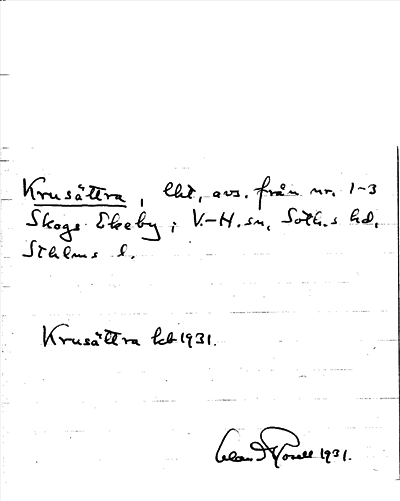 Krusättra, lht, avs. från nr. 1-3
Skogs Ekeby, V.-H. sn, Soth.s hd,
Sthlms l.
Krusättra kb 1931.
1931.